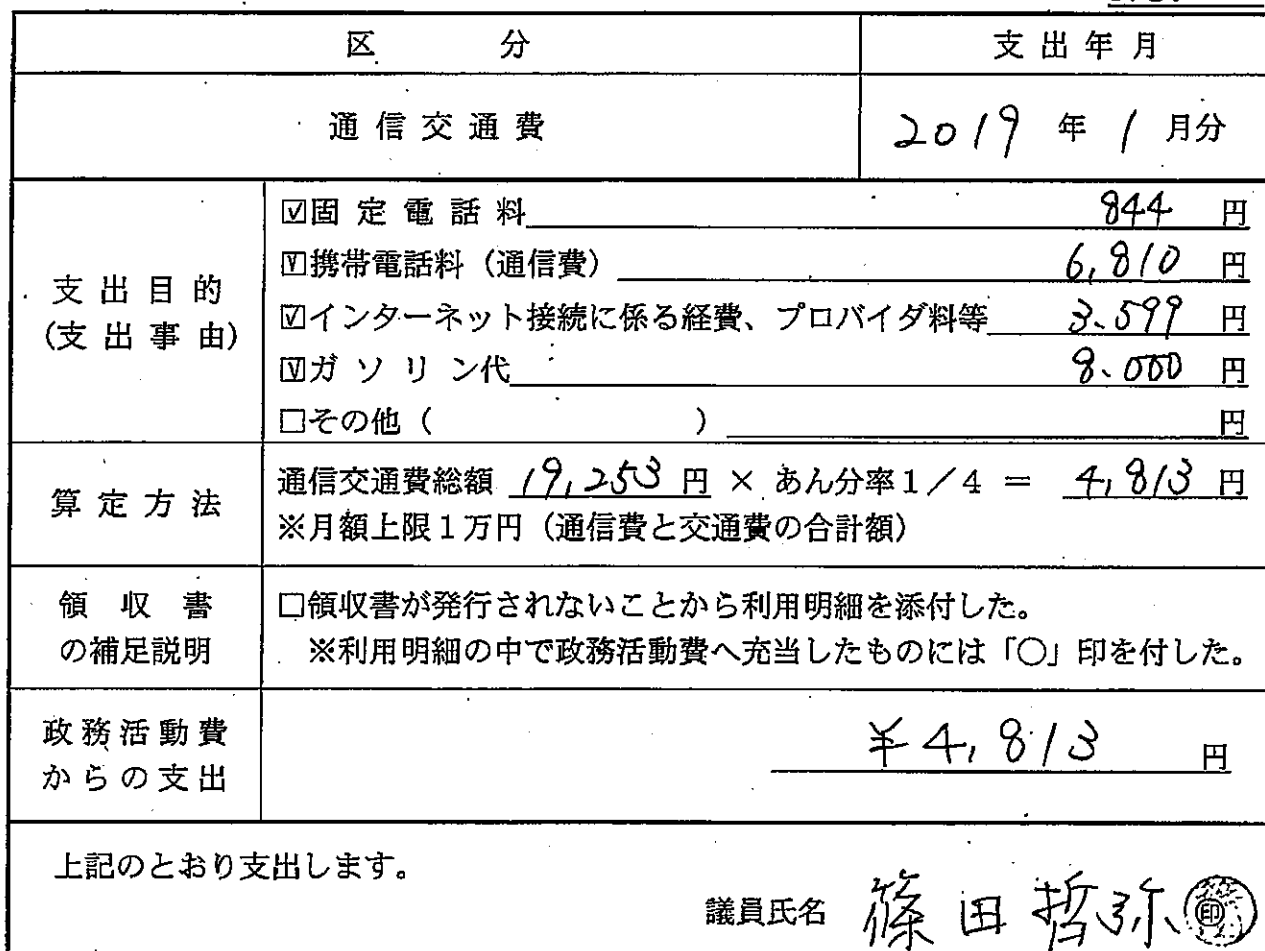 区 分 支出年月
通信交通費 2019 年 1 月分
支出目的
(支出事由)
☑固定電話料 844 円
☑携帯電話料(通信費) 6,810 円
☑インターネット接続に係る経費、プロバイダ料等 3,599 円
☑ガソリン代 8,000 円
□その他( ) 円
算定方法
通信交通費総額 19,253 円 × あん分率1/4 = 4,813 円
※月額上限1万円(通信費と交通費の合計額)
領収書
の補足説明
□領収書が発行されないことから利用明細を添付した。
※利用明細の中で政務活動費へ充当したものには「○」印を付した。
政務活動費
からの支出
¥4,813 円
上記のとおり支出します。
議員氏名 篠田哲弥 印